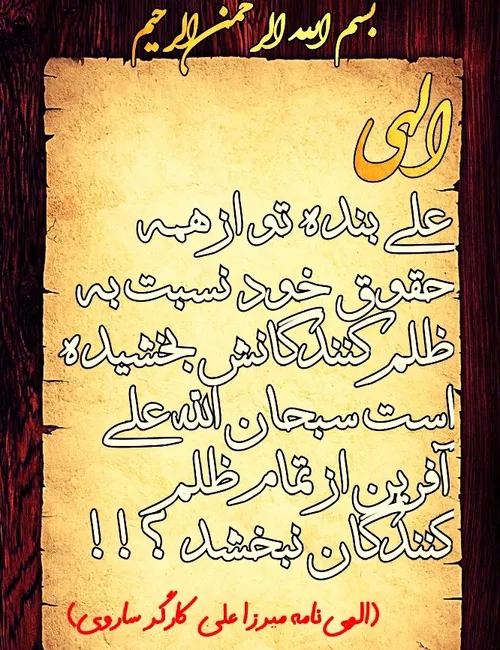 بسم الله الرحمن الرحیم
الهی
علی بنده تو از همه
حقوق خود نسبت به
ظلم کنندگانش بخشیده
است سبحان الله علی
آفرین از تمام ظلم
کنندگان نبخشد ؟!!
(الهی نامه میرزا علی کارگر ساروی)